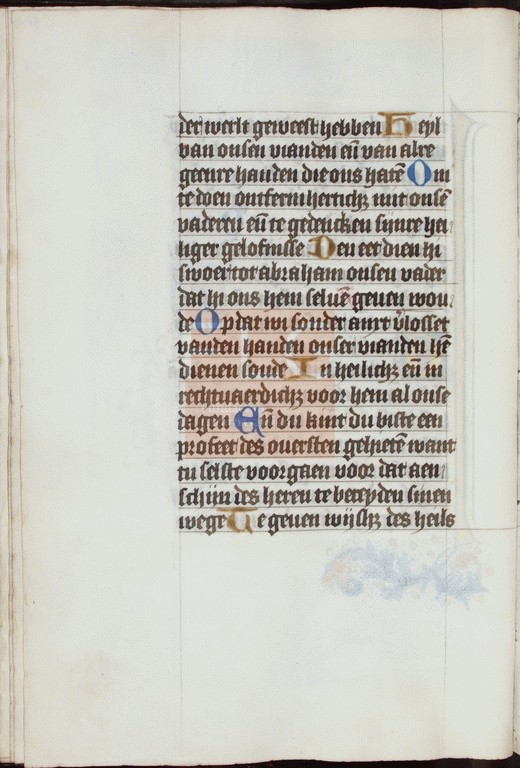 der werlt geweest hebben Heyl
van onsen vianden eñ van alre
geenre handen die ons hatē Om
te doen ontfermherticħz mit onsē
vaderen eñ te gedencken sijnre hei
liger gelofnisse Den eet dien hi
swoer tot abraham onsen vader
dat hi ons hem seluē geuen wou
de Op dat wi sonder anxt v̄losset
vanden handen onser vianden hē
dienen soudē In heilicħz eñ in
rechtuaerdicħz voor hem al onse
dagen Eñ du kint du biste een
profeet des ouersten gehietē want
tu selste voorgaen voor dat aen
schijn des heren te bereyden sinen
wege Te geuen wijsħz des heils